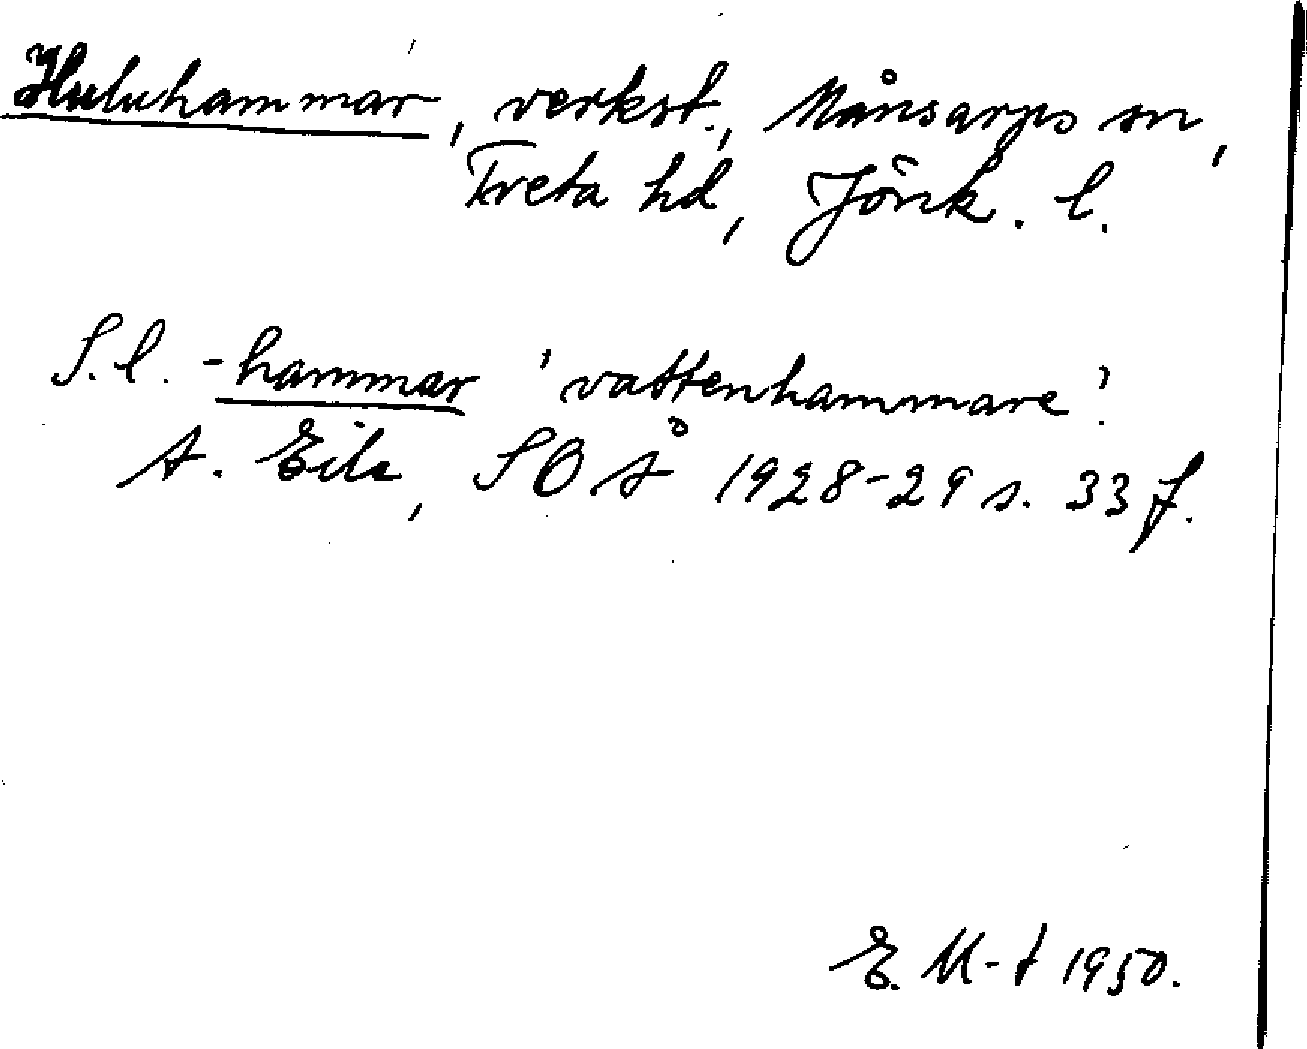 Huluhammar, verkst., Månsarps sn,
Tveta hd, Jönk. l.
S.l. -hammar 'vattenhammare'.
A. Eils, SOÅ 1928-29 s. 33 f.
E. M-t 1950.